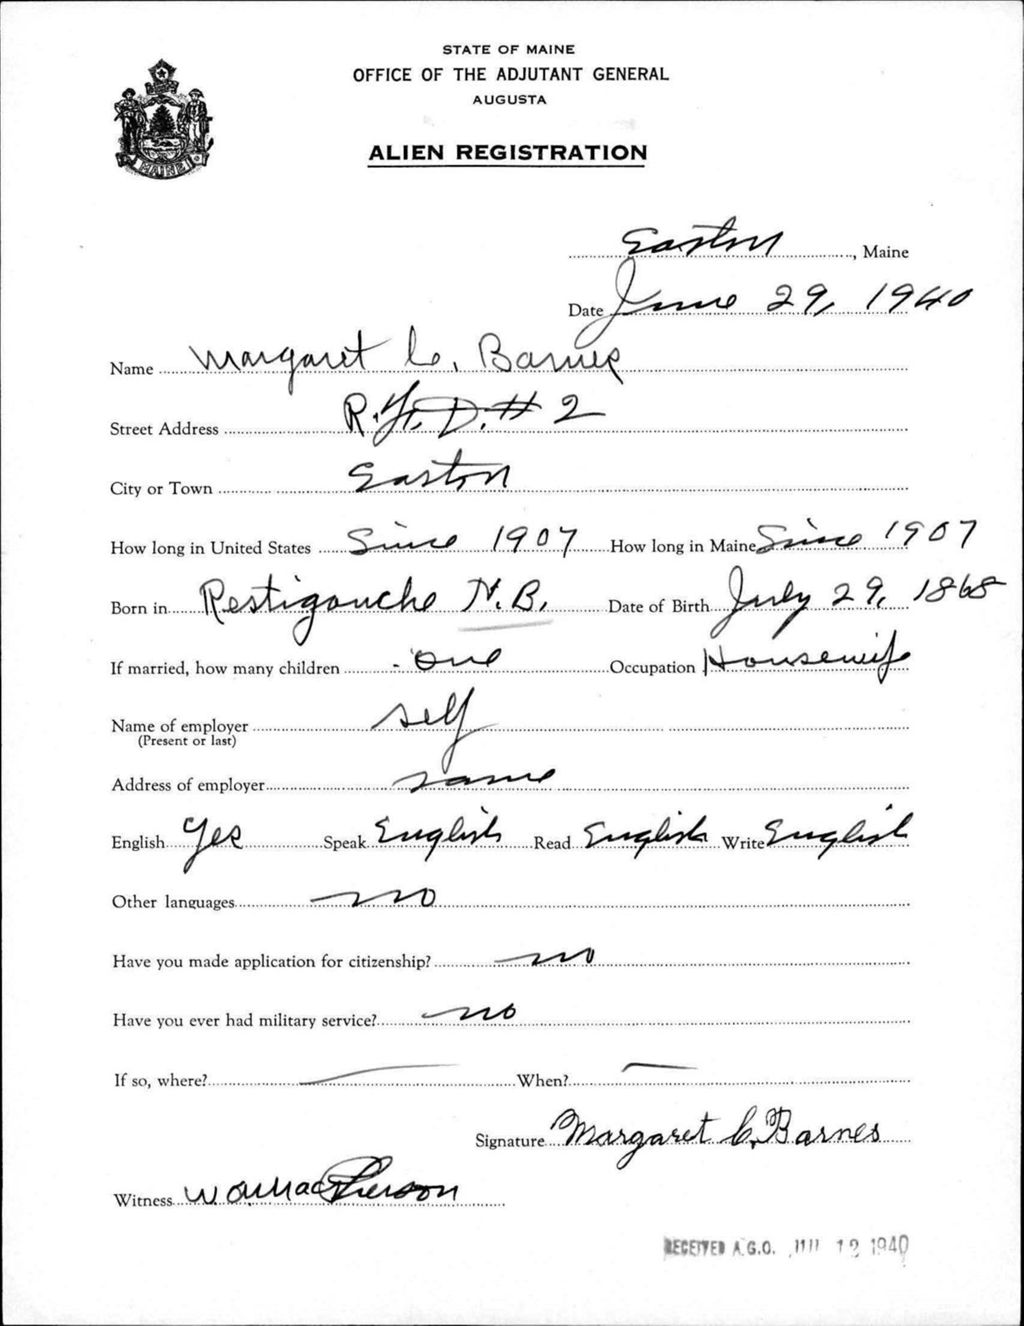 STATE OF MAINE
OFFICE OF THE ADJUTANT GENERAL
AUGUSTA
ALIEN REGISTRATION
MAINE
Easton, Maine
Date June 29, 1940
Name Margaret C. Barnes
Street Address R.F.D. # 2
City or Town Easton
How long in United States Since 1907 How long in Maine Since 1907
Born in Restigouche N.B. Date of Birth July 29, 1868
If married, how many children - one Occupation Housewife
Name of employer self
(Present or last)
Address of employer same
English Yes Speak English Read English Write English
Other languages no
Have you made application for citizenship? no
Have you ever had military service? no
If so, where? — When? —
Signature Margaret C. Barnes
Witness MacPherson
RECEIVED A.G.O. 12 1940